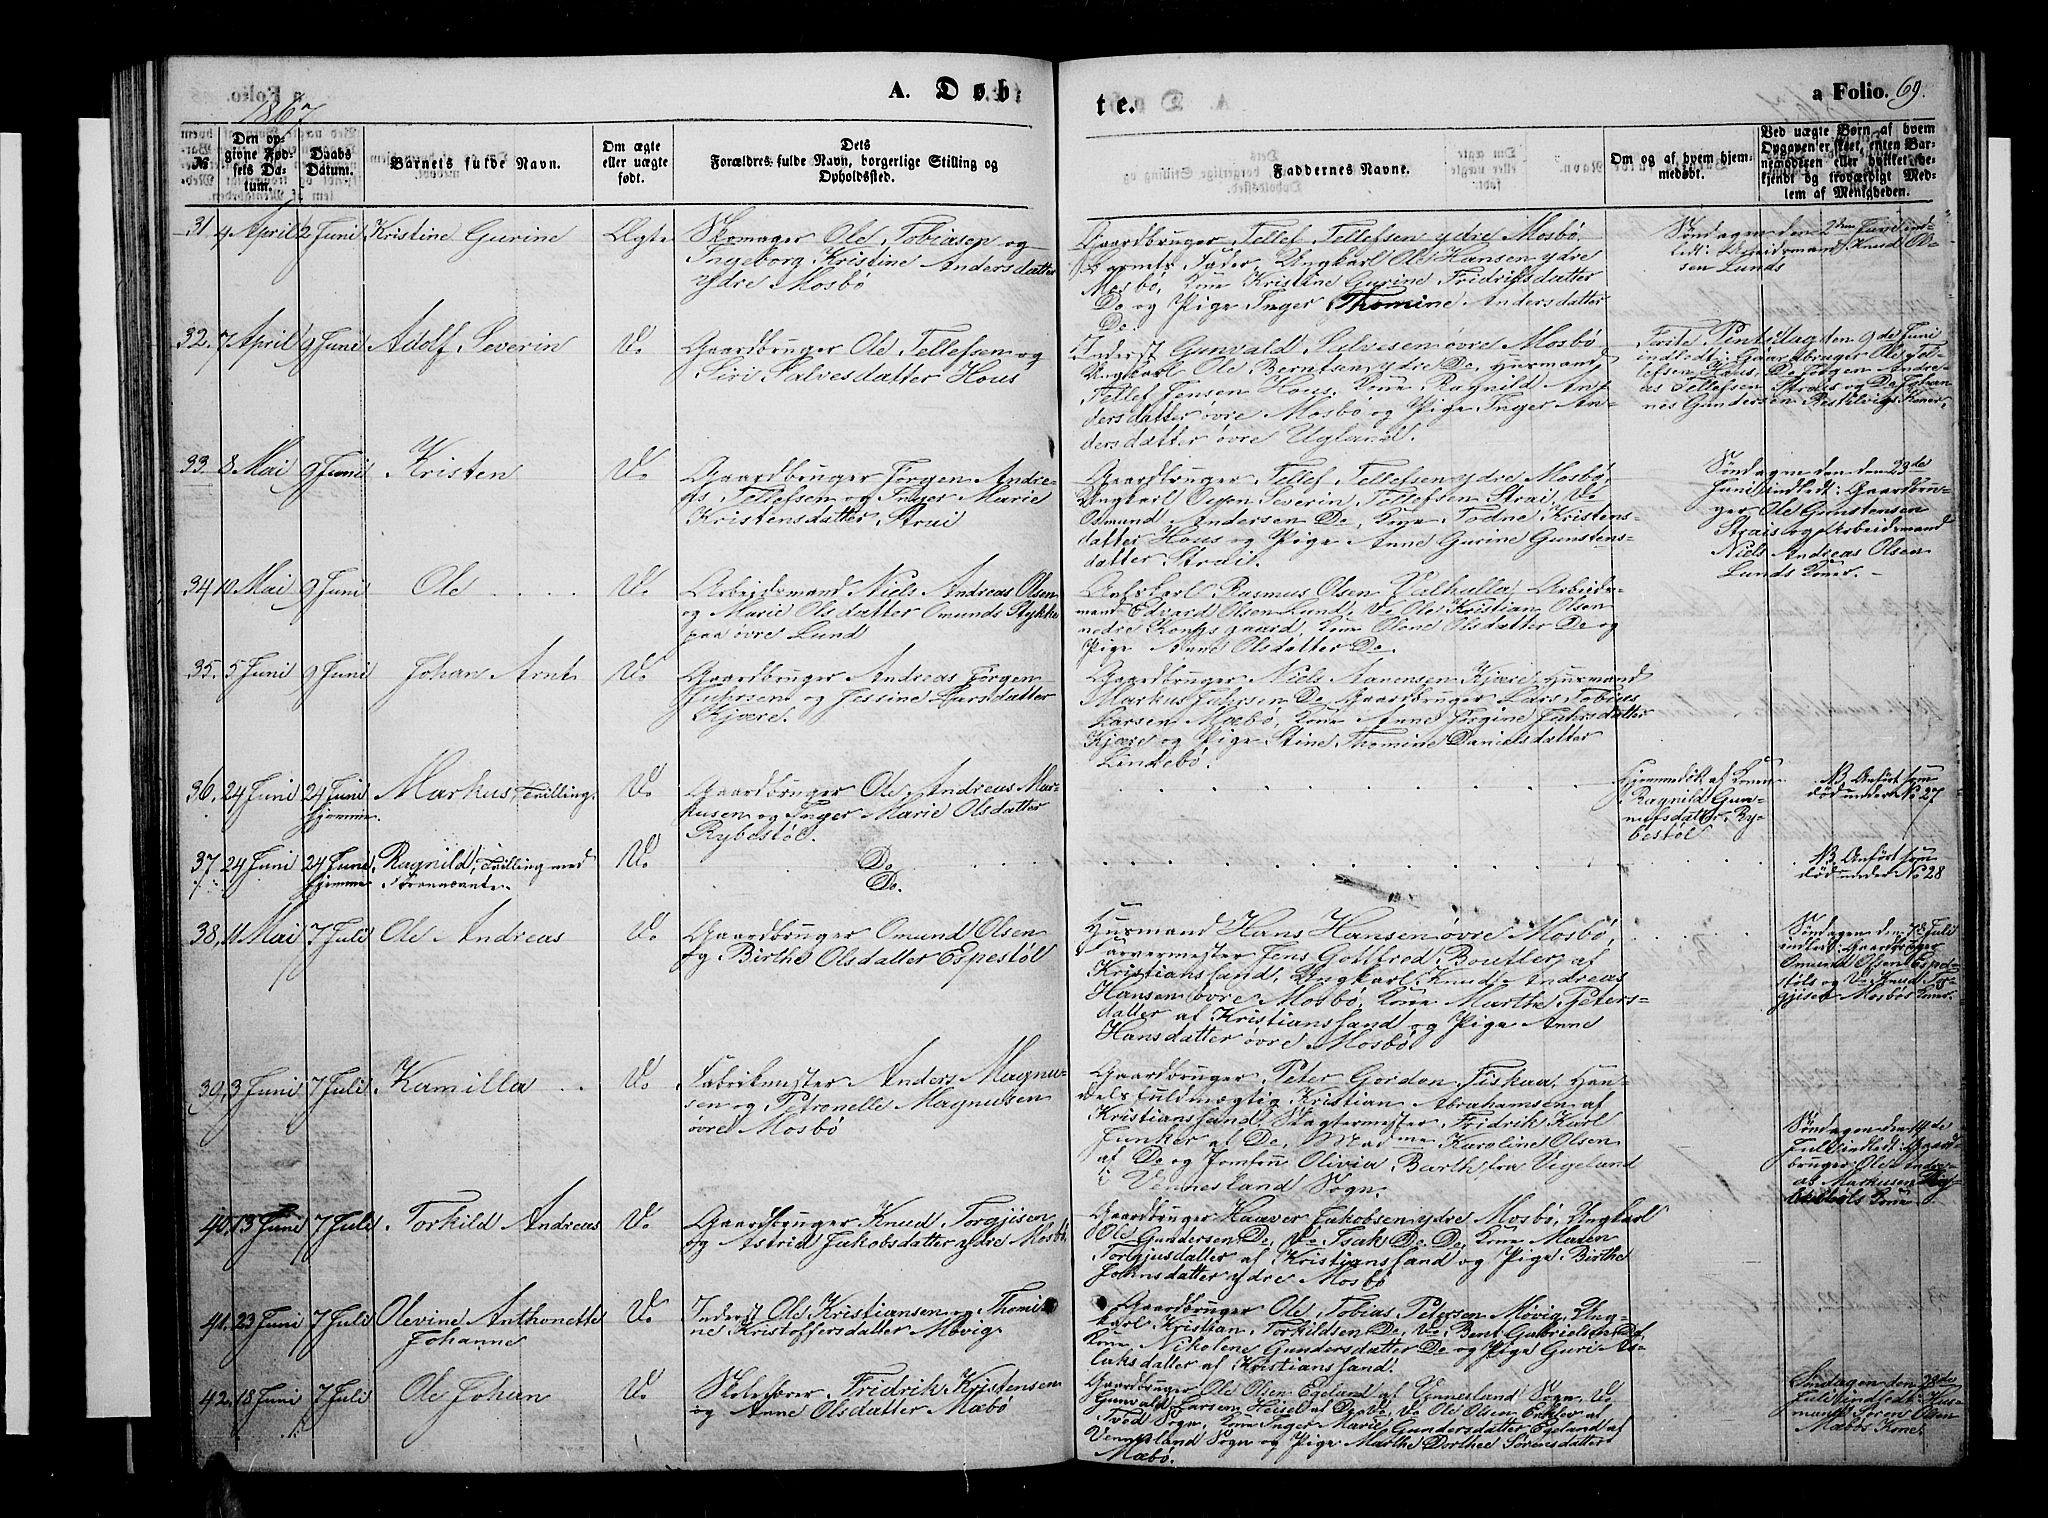 1867
A. Døb-
te.
a Folio. 69.
№
Den op-
givne Fød-
sels Da-
tum.
Daabs
Datum.
Barnets fulde Navn.
Om ægte
eller uægte
født.
Dets
Forældres fulde Navn, borgerlige Stilling og
Opholdssted.
Faddernes Navne.
Om og af hvem hjem-
medøbt.
Ved uægte Børn af hvem
Opgaven er skeet, enten Bar-
nemoderen eller hvilket be-
kjendt og troværdigt Med-
lem af Menigheden.
31 4 April 2 Juni Kristine Gurine Ægte
Skomager Ole Tobiasen og
Ingeborg Kristine Andersdatter
ydre Mosbø
Gaardbruger Tellef Tellefsen ydre Mosbø,
Barnets Fader, Ungkarl Ole Hansen ydre
Mosbø, Kone Kristine Gurine Fridriksdatter
Do og Pige Inger Thomine Andersdatter
Do.
Søndagen den 2den Juni ind-
ledt: Arbeidsmand Knud Ol-
sen Lunds
32. 7 April 9 Juni Adolf Severin Do
Gaardbruger Ole Tellefsen og
Siri Salvesdatter Hous
Inderst Gunvald Salvesen øvre Mosbø
Ungkarl Ole Berntsen ydre Do, Husmand
Tellef Jensen Hous, Kone Ragnild An-
dersdatter øvre Mosbø og Pige Inger An-
dersdatter øvre Ugland.
Første Pintsedag den 9de Juni
indledt: Gaardbruger Ole Tel-
lefsen Hous, Do Jørgen Andre-
as Tellefsen Strais og Do Johan-
nes Gundersen Koner.
33. 8 Mai 9 Juni Kristen Do
Gaardbruger Jørgen Andre-
as Tellefsen og Inger Marie
Kristensdatter Strai
Gaardbruger Tellef Tellefsen ydre Mosbø,
Ungkarl Ougen Severin Tellefsen Strai, Do
Osmund Andersen Do, Kone Todne Kristens-
datter Hous og Pige Anne Gurine Gunstens-
datter Strai.
Søndagen den den 23de
Juni indledt: Gaardbru-
ger Ole Gunstensen
Strais og Arbeidsmand
Niels Andreas Olsen
Lunds Koner.
34 10 Mai 9 Juni Ole Do
Arbeidsmand Niels Andreas Olsen
og Marie Olsdatter Omunds Stykke
paa øvre Lund
Rasmus Olsen Valhalla, Arbeids-
mand Edvard Olsen Lund, Do Ole Kristian Olsen
nedre Kongsgaard, Kone Olene Olsdatter Do og
Pige Anne Olsdatter Do.
35. 5 Juni 9 Juni Johan Arnt Do
Gaardbruger Andreas Jørgen
Jahrsen og Jessine Larsdatter
Kjære.
Gaardbruger Niels Aanensen Kjære, Husmand
Markus Jahrsen Do, Gaardbruger Lars Tobias
Larsen Mæbø, Kone Anne Jørgine Jahrsdatter
Kjære og Pige Stine Thomine Danielsdatter
Lindebø.
36. 24 Juni 24 Juni Markus, Tvilling. Do
hjemme
Gaardbruger Ole Andreas Mar-
kusen og Inger Marie Olsdatter
Rybestøl.
Hjemmedøbt af Kone
Ragnild Gun-
nufsdatter Ry-
bestøl
NB. Anført som
død under No 27
37 24 Juni 24 Juni, Ragnild, Tvilling med Do
hjemme Forannævnte.
Do
Do.
NB. Anført som
død under No 28
38, 11 Mai 7 Juli Ole Andreas Do
Gaardbruger Omund Olsen
og Birthe Olsdatter Espestøl
Husmand Hans Hansen øvre Mosbø,
Farvermester Jens Gottfred Boutler af
Kristianssand, Ungkarl Knud Andreas
Hansen øvre Mosbø, Kone Marthe Peters-
datter af Kristianssand og Pige Anne
Hansdatter øvre Mosbø
Søndagen den 7de Juli
indledt: Gaardbruger
Omund Olsen Espe-
støls og Do Knud Tor-
gjisen Mosbøs Koner.
39, 3 Juni 7 Juli. Kamilla Do
Fabrikmester Anders Magnu-
sen og Petronelle Magnusen
øvre Mosbø
Gaardbruger Peter Gordon Fiskaa, Han-
delsfuldmægtig Kristian Abrahamsen af
Kristianssand, Slagtermester Fridrik Karl
Junker af Do, Madme Karoline Olsen
af Do og Jomfru Olivia Barth fra Vigeland
i Vennesland Sogn.
Søndagen den 14de
Juli indledt: Gaard-
bruger Ole Andre-
as Markusen Ry-
bestøls Kone
40. 13 Juni 7 Juli Torkild Andreas Do
Gaardbruger Knud Torgjisen
og Astrid Jakobsdatter ydre Mosbø
Gaardbruger Haaver Jakobsen ydre Mosbø, Ungkarl
Ole Gundersen Do, Do Isak Do Do, Kone Maren
Torgjusdatter af Kristianssand og Pige Birthe
Johnsdatter ydre Mosbø
41. 23 Juni 7 Juli Olevine Anthonette Do
Johanne
Inderst Ole Kristiansen og Thomi-
ne Kristoffersdatter Møvig.
Gaardbruger Ole Tobias Petersen Møvig, Ung-
karl Kristian Torkildsen Do, Do Bent Gabrielsen Do,
Kone Nikolene Gundersdatter Do og Pige Guri As-
laksdatter af Kristianssand.
42. 18 Juni 7 Juli Ole Johan Do
Skolelærer Fridrik Kristensen
og Anne Olsdatter Mæbø
Gaardbruger Ole Olsen Egeland af Vennesland Sogn, Do
Gunvald Larsen Heisel af Do, Do Ole Olsen af
Tved Sogn, Kone Inger Marie Gundersdatter Egeland af
Vennesland Sogn og Pige Marthe Dorthea Sørensdatter
Mæbø.
Søndagen den 28de
Juli indledt: Hus-
mand Søren Olsen
Mæbøs Kone.